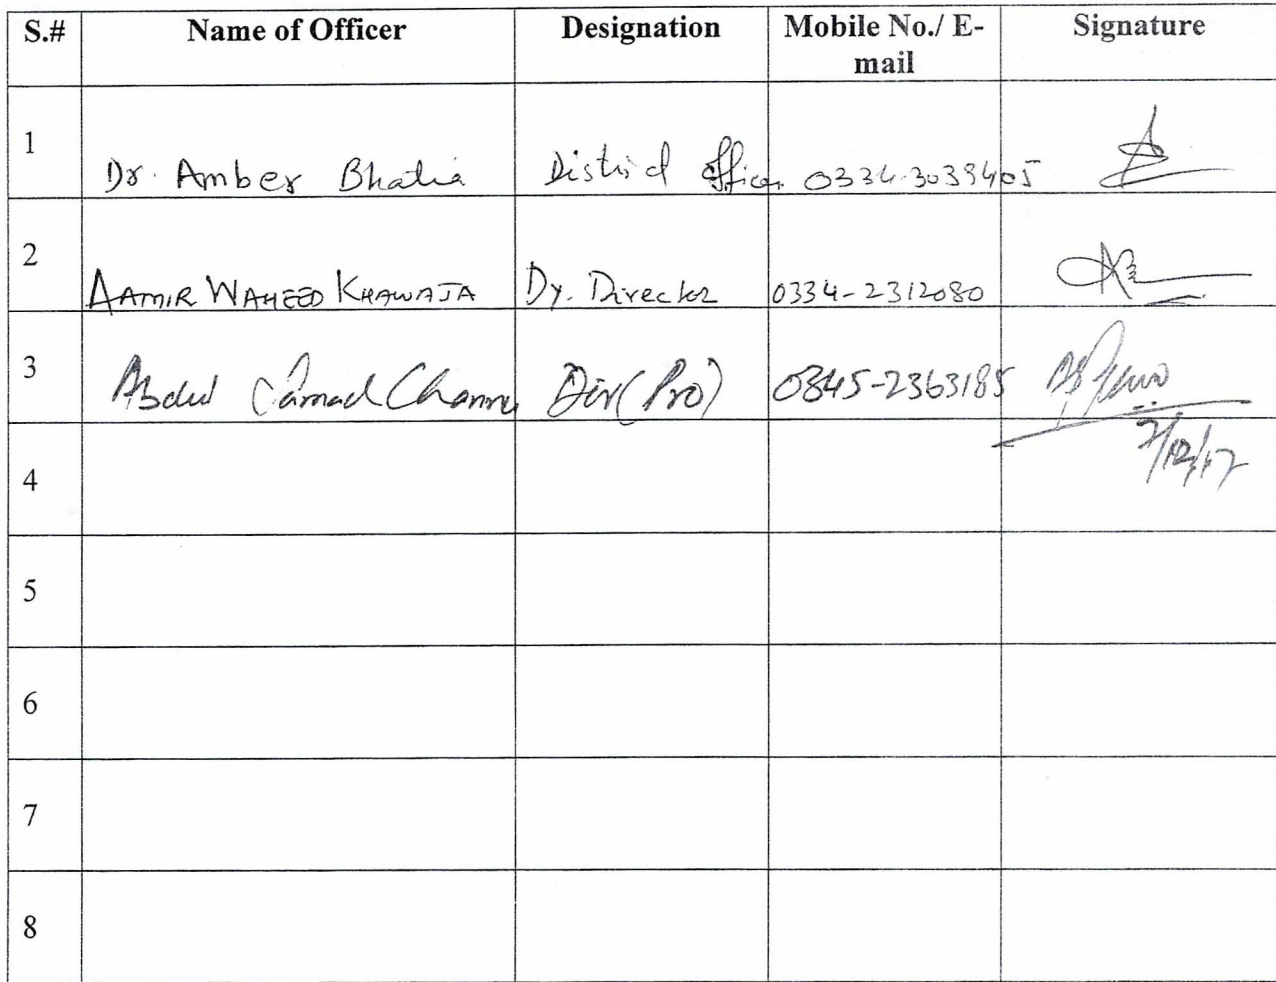 S.# Name of Officer Designation Mobile No./ E-
mail Signature
1 Dr. Amber Bhatia District Officer 0334-3039405
2 AAMIR WAHEED KHAWAJA Dy. Director 0334-2312080
3 Abdul Samad Channa Dir(Pro) 0345-2363185
7/12/17
4
5
6
7
8